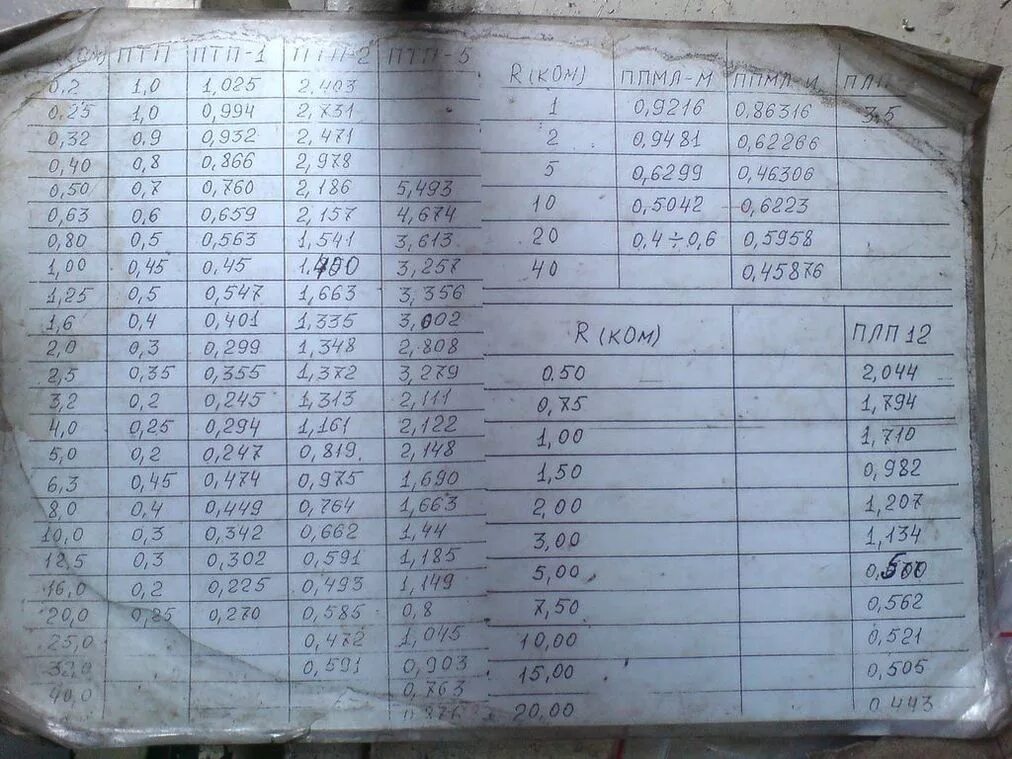 КОМ) ПТП ПТП-1 ПТП-2 ПТП-5
0.2 1,0 1,025 2,403
0,25 1,0 0,994 2,731
0,32 0,9 0,932 2,471
0,40 0,8 0,866 2,978
0,50 0,7 0,760 2,186 5,493
0,63 0,6 0,659 2,157 4,674
0,80 0,5 0,563 1,541 3,613
1,00 0,45 0,45 3,257
1,25 0,5 0,547 1,663 3,356
1,6 0,4 0,401 1,335 3,002
2,0 0,3 0,299 1,348 2,808
2,5 0,35 0,355 1,372 3,279
3,2 0,2 0,245 1,313 2,111
4,0 0,25 0,294 1,161 2,122
5,0 0,2 0,247 0,819 2,148
6,3 0,45 0,474 0,975 1,690
8,0 0,4 0,449 0,764 1,663
10,0 0,3 0,342 0,662 1,44
12,5 0,3 0,302 0,591 1,185
16,0 0,2 0,225 0,493 1,149
20,0 0,25 0,270 0,585 0,8
25,0 0,472 1,045
32,0 0,591 0,903
40,0 0,763
R (КОМ) ППМЛ-М ППМЛ-И ПЛП
1 0,9216 0,86316 3,5
2 0,9481 0,62266
5 0,6299 0,46306
10 0,5042 0,6223
20 0,4÷0,6 0,5958
40 0,45876
R (КОМ) ПЛП 12
0.50 2,044
0,75 1,794
1,00 1,710
1,50 0,982
2,00 1,207
3,00 1,134
5,00 0,500
7,50 0,562
10,00 0,521
15,00 0,505
20,00 0,443